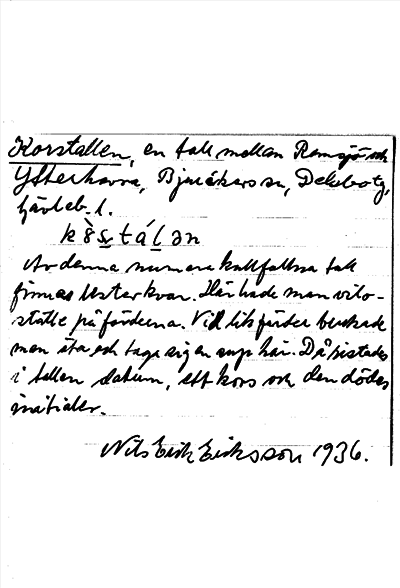 Korstallen, en tall mellan Ramsjö och
Ytterhavra, Bjuråkers sn, Delsbo tg,
Gävleb. l.
kö̀stáḷən
Av denna numera kullfallna tall
finnes rester kvar. Här hade man vilo-
ställe på färderna. Vid likfärder brukade
man äta och taga sig en sup här. Då ristades
i tallen datum, ett kors och den dödes
initialer.
Nils Erik Eriksson 1936.